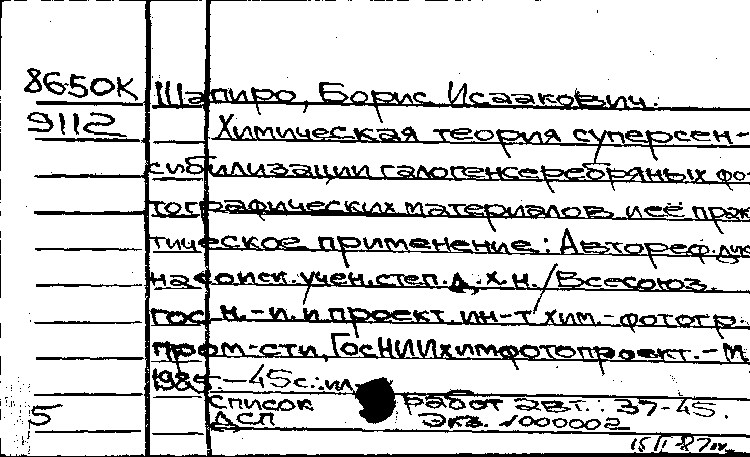 8650К Шапиро, Борис Исаакович.
9112 Химическая теория суперсен-
сибилизации галогенсеребряных фо-
тографических материалов и её прак-
тическое применение: Автореф. дис
на соиск. учен. степ. д. х. н. / Всесоюз.
гос. н.-и. и проект. ин-т хим.-фотогр.
пром-сти, ГосНИИхимфотопроект. - М
1985. - 45 с.: ил.
Список работ авт.: 37-45.
5 ДСП Экз. 1000002